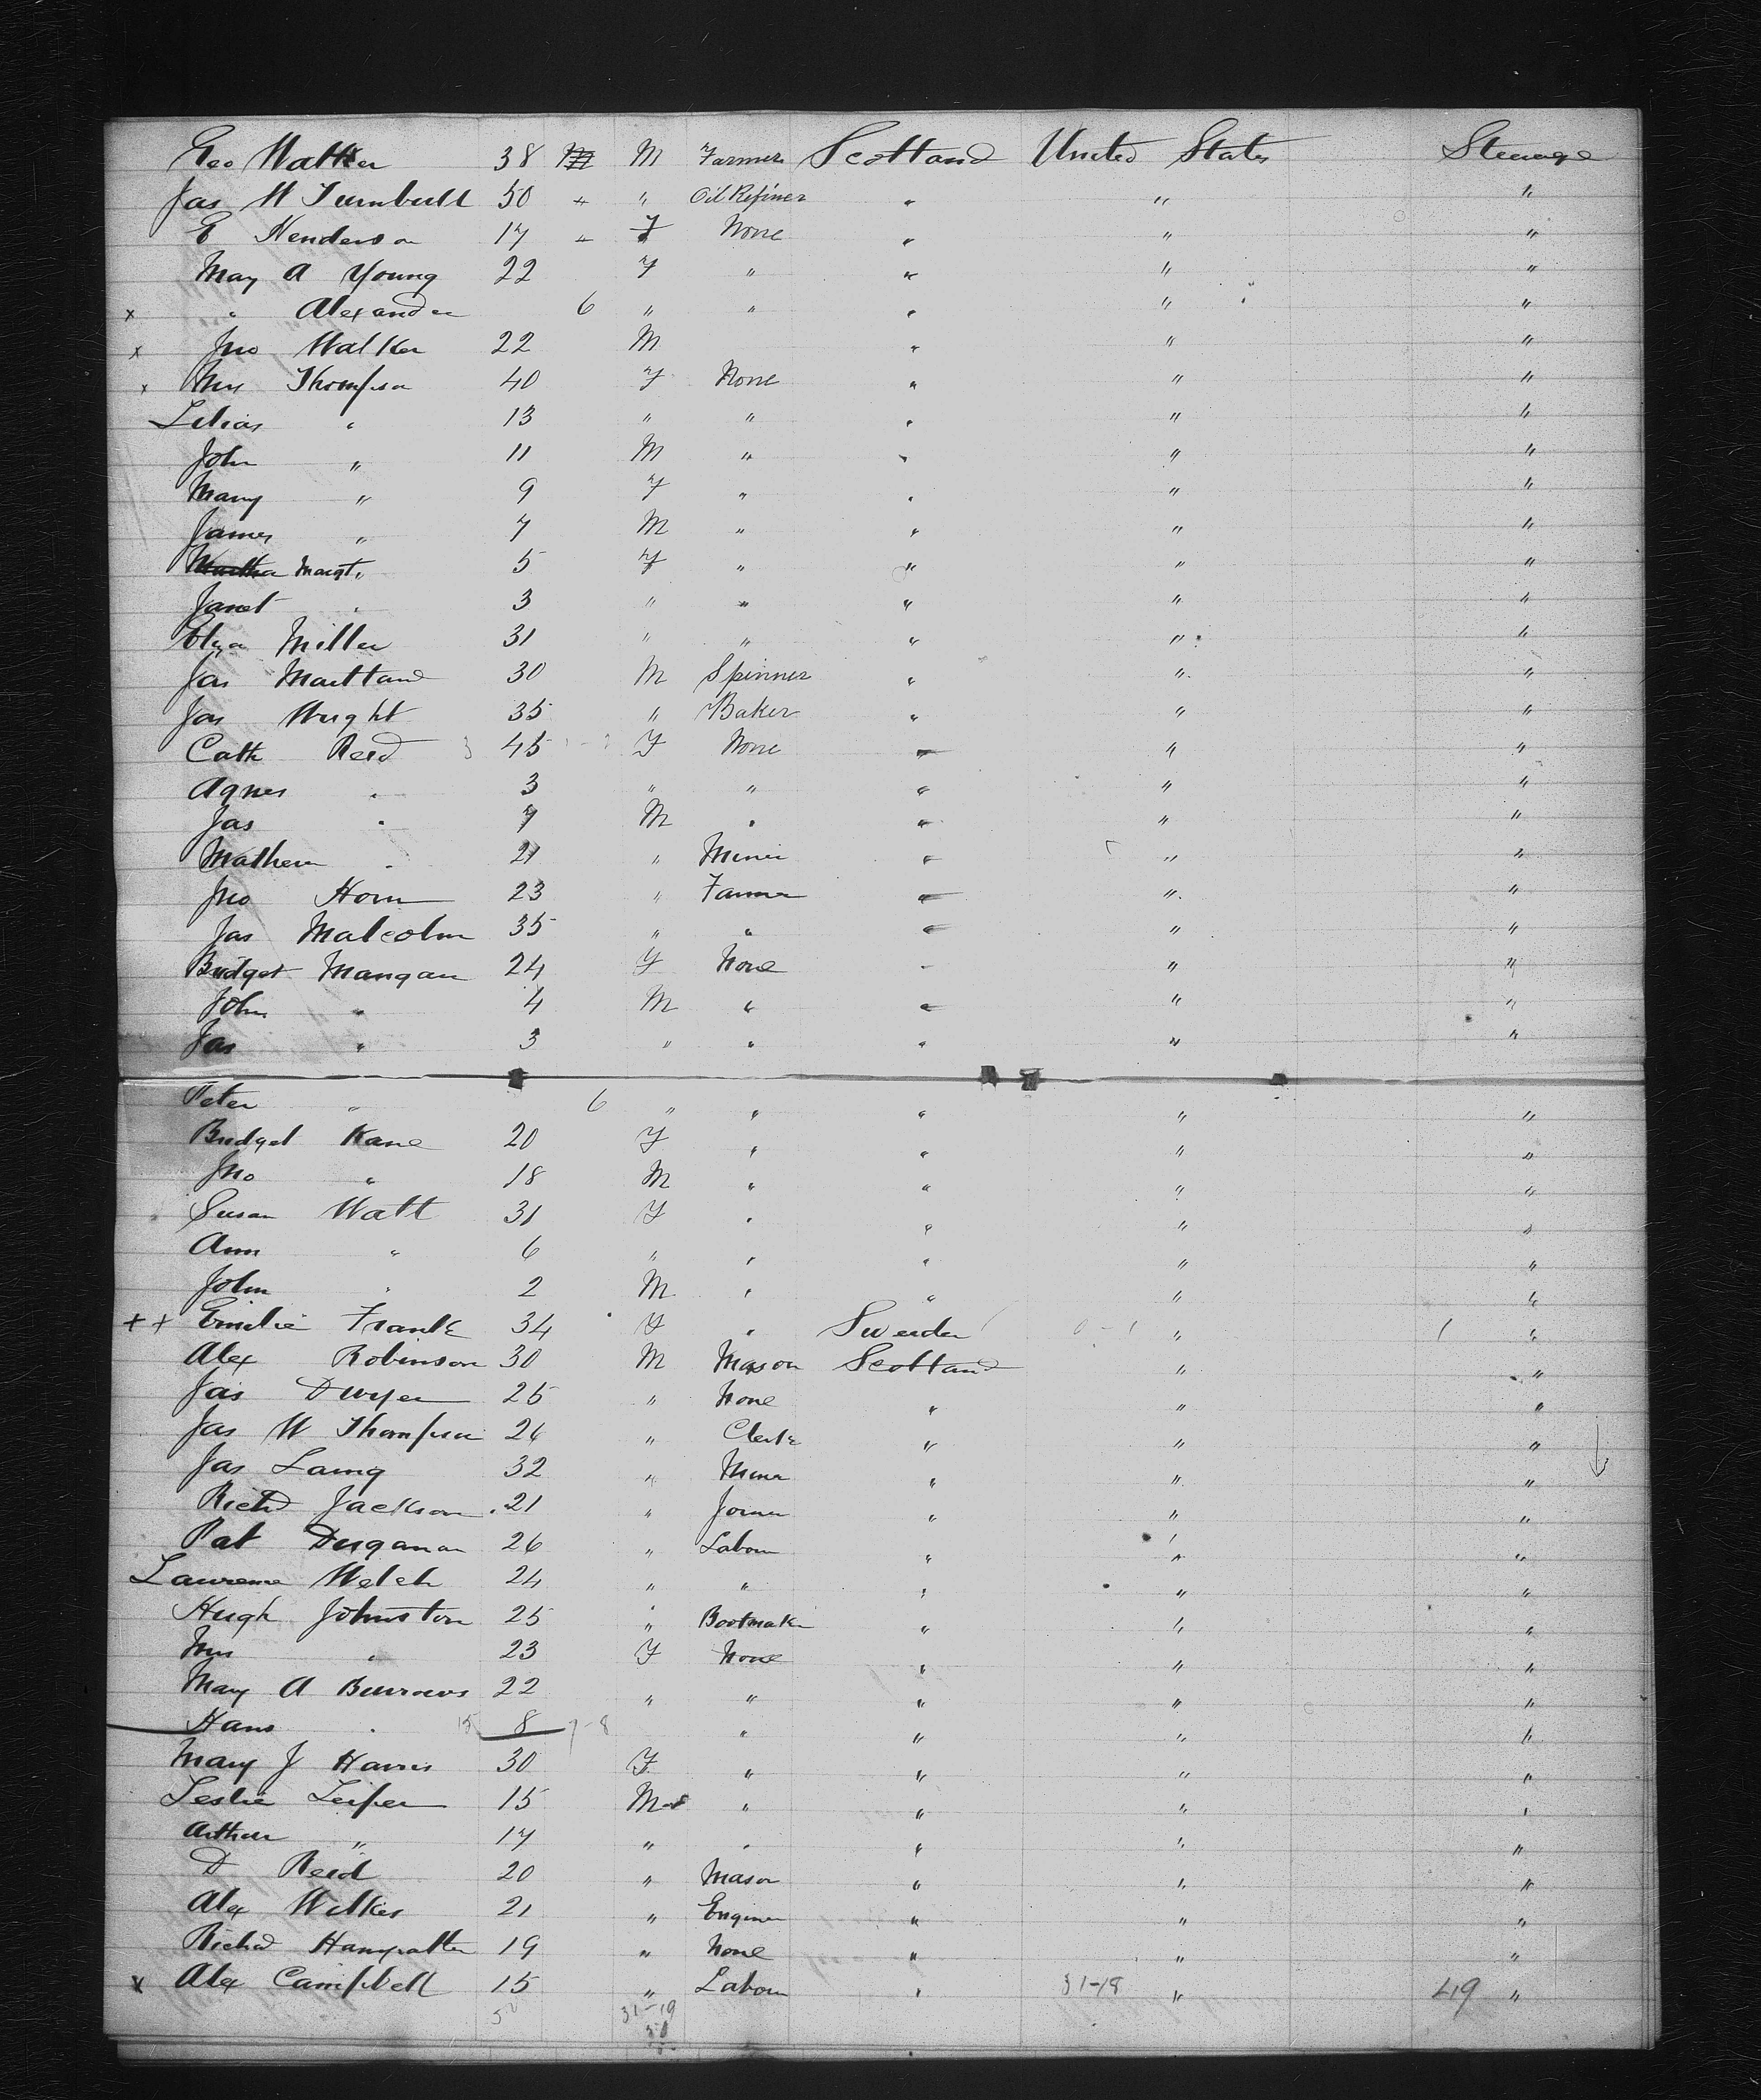 Geo Walker 38 M Farmer Scotland United States Steerage
Jas W Turnbull 50 " " Oil Refiner " " "
E Henderson 17 " F None " " "
May A Young 22 F " " " "
x " Alexander 6 " " " " "
x Jno Walker 22 M " " "
x Mrs Thompson 40 F None " " "
Lilias " 13 " " " " "
John " 11 M " " " "
Mary " 9 F " " " "
James " 7 M " " " "
Martha Margt " 5 F " " " "
Janet " 3 " " " " "
Eliza Miller 31 " " " " "
Jas Maitland 30 M Spinner " " "
Jas Wright 35 " Baker " " "
Cath Reid 45 F None " " "
Agnes " 3 " " " " "
Jas " 7 M " " " "
Mathew " 21 " Miner " " "
Jno Horn 23 " Farmer " " "
Jas Malcolm 35 " " " " "
Bridget Mangan 24 F None " " "
John " 4 M " " " "
Jas " 3 " " " " "
Peter " 6 " " " " "
Bridget Kane 20 F " " " "
Jno " 18 M " " " "
Susan Watt 31 F " " " "
Ann " 6 " " " " "
John " 2 M " " " "
++ Emilie Frank 34 F " Sweden " "
Alex Robinson 30 M Mason Scotland " "
Jas Dwyer 25 " None " " "
Jas W Thompson 26 " Clerk " " "
Jas Laing 32 " Miner " " "
Richd Jackson 21 " Joiner " " "
Pat Duganan 26 " Labour " " "
Lawrence Welch 24 " " " " "
Hugh Johnston 25 " Bootmaker " " "
Mrs " 23 F None " " "
Mary A Burrows 22 " " " " "
Hans " 8 " " " "
Mary J Harris 30 F " " " "
Leslie Leiper 15 M " " " "
Arthur " 17 " " " " "
D Reid 20 " Mason " " "
Alex Wilkes 21 " Engineer " " "
Richd 19 " None " " "
x Alex Campbell 15 " Labour " 31-18 " 49 "
31-19